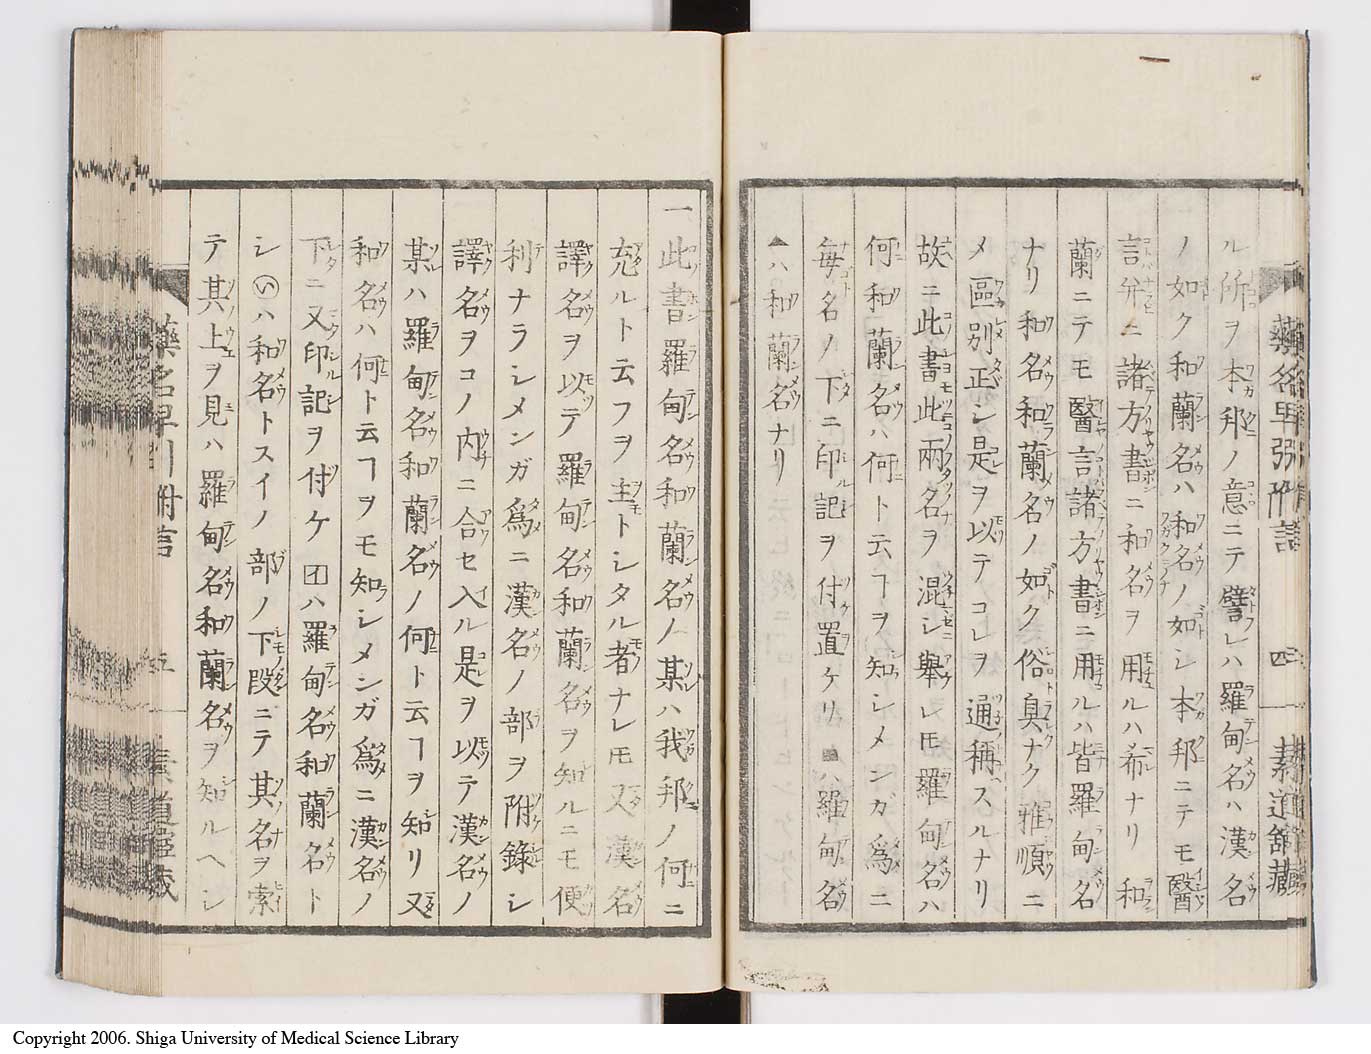 ル所ヲ本邦ノ意ニテ譬レハ羅甸名ハ漢名
ノ如ク和蘭名ハ和名ノ如シ本邦ニテモ醫
言并ニ諸方書ニ和名ヲ用ルハ希ナリ和
蘭ニテモ醫言諸方書ニ用ルハ皆羅甸名
ナリ和名和蘭名ノ如ク俗臭ナク雅順ニ
メ區別正シ是ヲ以テコレヲ通稱スルナリ
故ニ此書此兩名ヲ混シ擧レ𪜈羅甸名ハ
何和蘭名ハ何ト云ヿヲ知シメンガ爲ニ
毎名ノ下ニ印記ヲ付置ケリ■ハ羅甸名
▲ハ和蘭名ナリ
藥名早引附言
四
一此書羅甸名和蘭名ノ某ハ我邦ノ何ニ
充ルト云フヲ主トシタル者ナレ𪜈又漢名
譯名ヲ以テ羅甸名和蘭名ヲ知ルニモ便
利ナラシメンガ爲ニ漢名ノ部ヲ附錄シ
譯名ヲコノ内ニ合セ入ル是ヲ以テ漢名ノ
某ハ羅甸名和蘭名ノ何ト云ヿヲ知リ又
和名ハ何ト云ヿヲモ知シメンガ爲ニ漢名ノ
下ニ又印記ヲ付ケ囗イハ羅甸名和蘭名ト
シ◯いハ和名トスイノ部ノ下段ニテ其名ヲ索
テ其上ヲ見ハ羅甸名和蘭名ヲ知ルヘシ
藥名早引附言
五
Copyright 2006. Shiga University of Medical Science Library